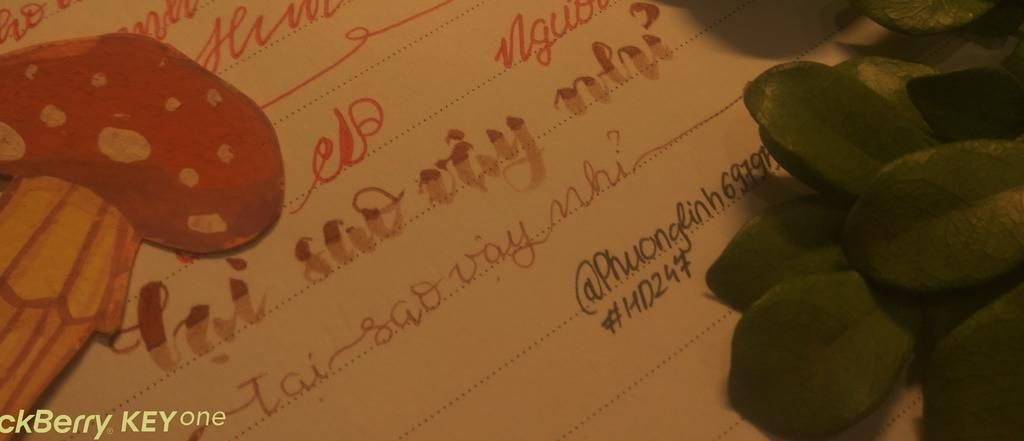 Người
Tại sao vậy nhỉ?
Tại sao vậy nhỉ?
@Phuonglinh6979
#HD247
ckBerry KEYone